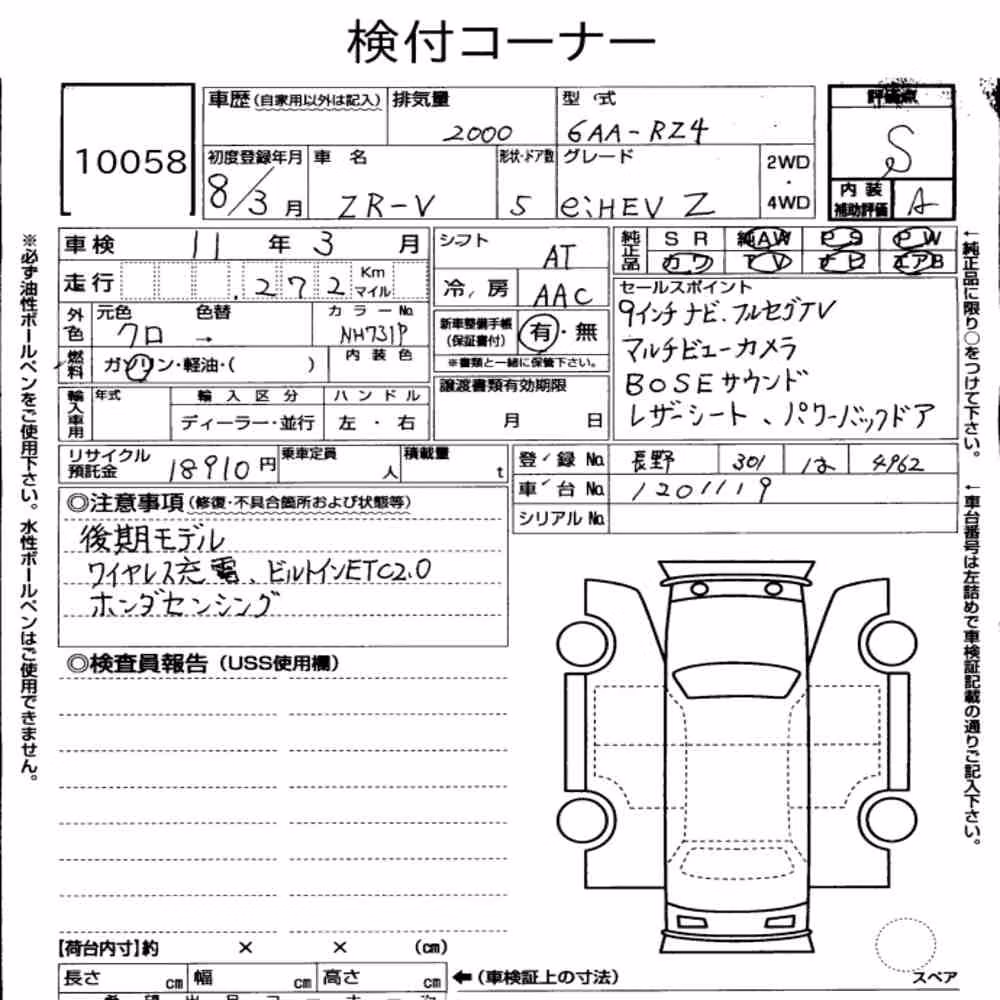 検付コーナー
10058
車歴(自家用以外は記入)
排気量
2000
型 式
6AA-RZ4
評価点
S
内装
補助評価
A
初度登録年月
8/3月
車 名
ZR-V
形状・ドア数
5
グレード
e:HEV Z
2WD
・
4WD
車検 11年3月
走行 .272 Km
マイル
外色
元色 クロ
色替 →
カラーNo
NH731P
燃料
ガソリン・軽油・( )
内装色
輸入車用
年式
輸入区分
ディーラー・並行
ハンドル
左・右
シフト
AT
冷房
AAC
新車整備手帳
(保証書付)
有・無
※書類と一緒に保管下さい。
譲渡書類有効期限
月 日
純正品
SR 純AW PS PW
カワ TV ナビ エアB
セールスポイント
9インチナビ.フルセグTV
マルチビューカメラ
BOSEサウンド
レザーシート、パワーバックドア
リサイクル
預託金
18910円
乗車定員
人
積載量
t
登録No.
長野 301 は 4962
車台No.
1201119
シリアルNo.
◎注意事項(修復・不具合箇所および状態等)
後期モデル
ワイヤレス充電、ビルトインETC2.0
ホンダセンシング
◎検査員報告(USS使用欄)
【荷台内寸】約 × × (cm)
長さ cm 幅 cm 高さ cm
←(車検証上の寸法)
スペア
※必ず油性ボールペンをご使用下さい。水性ボールペンはご使用できません。
←純正品に限り○をつけて下さい。
←車台番号は左詰めで車検証記載の通りご記入下さい。